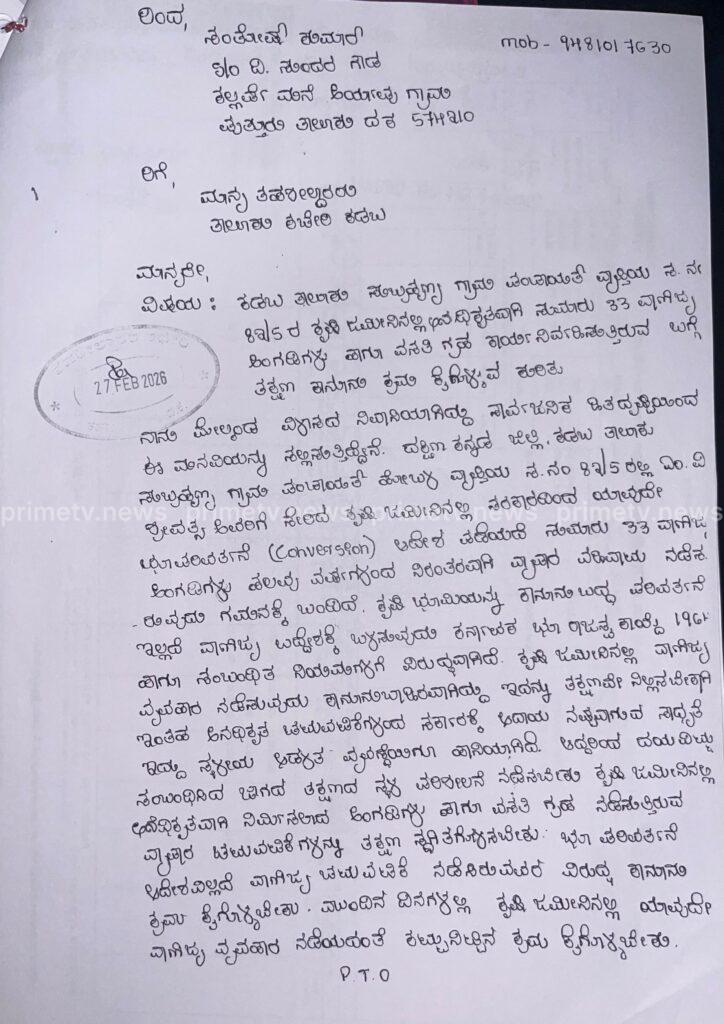 ಇಂದ,
ಸಂತೋಷ್ ಕುಮಾರ್
mob - 9481017630
S/o ದಿ. ಸುಂದರ ಗೌಡ
ಕಲ್ಲರ್ಪೆ ಮನೆ ಆರ್ಯಾಪು ಗ್ರಾಮ
ಪುತ್ತೂರು ತಾಲೂಕು ದ ಕ 574210
ರಿಗೆ,
ಮಾನ್ಯ ತಹಶೀಲ್ದಾರರು
ತಾಲೂಕು ಕಚೇರಿ ಕಡಬ
ಮಾನ್ಯರೇ,
ವಿಷಯ : ಕಡಬ ತಾಲೂಕು ಸುಬ್ರಹ್ಮಣ್ಯ ಗ್ರಾಮ ಪಂಚಾಯತ್ ವ್ಯಾಪ್ತಿಯ ಸ.ನಂ
ರ ಕೃಷಿ ಜಮೀನಿನಲ್ಲಿ ಅನಧಿಕೃತವಾಗಿ ಸುಮಾರು 33 ವಾಣಿಜ್ಯ
ಅಂಗಡಿಗಳು ಹಾಗೂ ವಸತಿ ಗೃಹ ಕಾರ್ಯನಿರ್ವಹಿಸುತ್ತಿರುವ ಬಗ್ಗೆ
ತಕ್ಷಣ ಕಾನೂನು ಕ್ರಮ ಕೈಗೊಳ್ಳುವ ಕುರಿತು
27 FEB 2026
ನಾನು ಮೇಲ್ಕಂಡ ವಿಳಾಸದ ನಿವಾಸಿಯಾಗಿದ್ದು ಸಾರ್ವಜನಿಕ ಹಿತದೃಷ್ಟಿಯಿಂದ
ಈ ಮನವಿಯನ್ನು ಸಲ್ಲಿಸುತ್ತಿದ್ದೇನೆ. ದಕ್ಷಿಣ ಕನ್ನಡ ಜಿಲ್ಲೆ, ಕಡಬ ತಾಲೂಕು
ಸುಬ್ರಹ್ಮಣ್ಯ ಗ್ರಾಮ ಪಂಚಾಯತ್ ಹೋಬಳಿ ವ್ಯಾಪ್ತಿಯ ಸ.ನಂ ರಲ್ಲಿ ಎಂ. ವಿ
ಶ್ರೀವತ್ಸ ಎಂಬವರಿಗೆ ಸೇರಿದ ಕೃಷಿ ಜಮೀನಿನಲ್ಲಿ ಸರಕಾರದಿಂದ ಯಾವುದೇ
ಭೂಪರಿವರ್ತನೆ (Conversion) ಆದೇಶ ಪಡೆಯದೆ ಸುಮಾರು 33 ವಾಣಿಜ್ಯ
ಅಂಗಡಿಗಳು ಹಲವು ವರ್ಷಗಳಿಂದ ನಿರಂತರವಾಗಿ ವ್ಯಾಪಾರ ವಹಿವಾಟು ನಡೆಸಿ
-ರುವುದು ಗಮನಕ್ಕೆ ಬಂದಿದೆ. ಕೃಷಿ ಭೂಮಿಯನ್ನು ಕಾನೂನು ಬದ್ಧ ಪರಿವರ್ತನೆ
ಇಲ್ಲದೆ ವಾಣಿಜ್ಯ ಉದ್ದೇಶಕ್ಕೆ ಬಳಸುವುದು ಕರ್ನಾಟಕ ಭೂ ರಾಜಸ್ವ ಕಾಯ್ದೆ 1964
ಹಾಗೂ ಸಂಬಂಧಿತ ನಿಯಮಗಳಿಗೆ ವಿರುದ್ಧವಾಗಿದೆ. ಕೃಷಿ ಜಮೀನಿನಲ್ಲಿ ವಾಣಿಜ್ಯ
ವ್ಯವಹಾರ ನಡೆಸುವುದು ಕಾನೂನುಬಾಹಿರವಾಗಿದ್ದು ಇದನ್ನು ತಕ್ಷಣವೇ ನಿಲ್ಲಿಸಬೇಕಾಗಿ
ಇಂತಹ ಅನಧಿಕೃತ ಚಟುವಟಿಕೆಗಳಿಂದ ಸರ್ಕಾರಕ್ಕೆ ಆದಾಯ ನಷ್ಟವಾಗುವ ಸಾಧ್ಯತೆ
ಇದ್ದು ಸ್ಥಳೀಯ ಆಡಳಿತ ವ್ಯವಸ್ಥೆಯಿಗೂ ಹಾನಿಯಾಗಿದೆ. ಆದ್ದರಿಂದ ದಯವಿಟ್ಟು
ಸಂಬಂಧಿಸಿದ ಜಾಗದ ತಕ್ಷಣದ ಸ್ಥಳ ಪರಿಶೀಲನೆ ನಡೆಸಬೇಕು ಕೃಷಿ ಜಮೀನಿನಲ್ಲಿ
ಅನಧಿಕೃತವಾಗಿ ನಿರ್ಮಿಸಲಾದ ಅಂಗಡಿಗಳು ಹಾಗೂ ವಸತಿ ಗೃಹ ನಡೆಸುತ್ತಿರುವ
ವ್ಯಾಪಾರ ಚಟುವಟಿಕೆಗಳನ್ನು ತಕ್ಷಣ ಸ್ಥಗಿತಗೊಳಿಸಬೇಕು. ಭೂ ಪರಿವರ್ತನೆ
ಆದೇಶವಿಲ್ಲದೆ ವಾಣಿಜ್ಯ ಚಟುವಟಿಕೆ ನಡೆಸಿರುವವರ ವಿರುದ್ಧ ಕಾನೂನು
ಕ್ರಮ ಕೈಗೊಳ್ಳಬೇಕು. ಮುಂದಿನ ದಿನಗಳಲ್ಲಿ ಕೃಷಿ ಜಮೀನಿನಲ್ಲಿ ಯಾವುದೇ
ವಾಣಿಜ್ಯ ವ್ಯವಹಾರ ನಡೆಯದಂತೆ ಕಟ್ಟುನಿಟ್ಟಿನ ಕ್ರಮ ಕೈಗೊಳ್ಳಬೇಕು.
P.T.O
primetv.news primetv.news primetv.news primetv.news